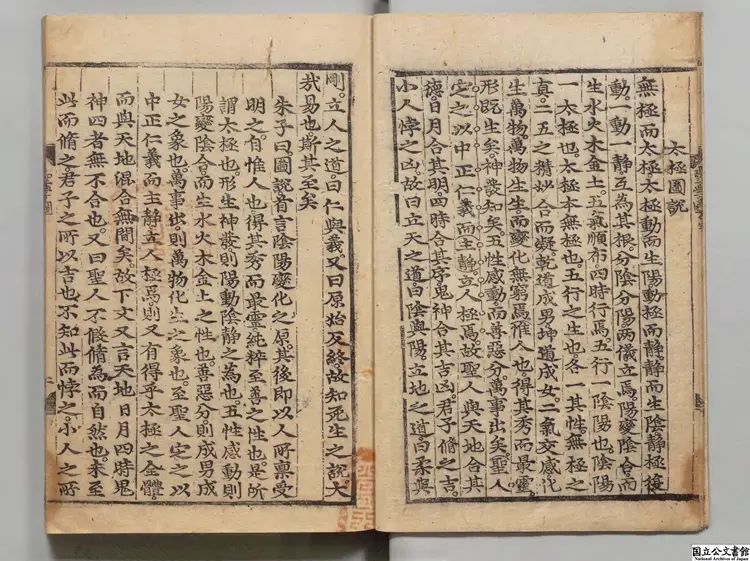 太極圖說
無極而太極太極動而生陽動極而靜靜而生陰靜極復
動一動一靜互為其根分陰分陽兩儀立焉陽變陰合而
生水火木金土五氣順布四時行焉五行一陰陽也陰陽
一太極也太極本無極也五行之生也各一其性無極之
真二五之精妙合而凝乾道成男坤道成女二氣交感化
生萬物萬物生生而變化無窮焉惟人也得其秀而最靈
形既生矣神發知矣五性感動而善惡分萬事出矣聖人
定之以中正仁義而主靜立人極焉故聖人與天地合其
德日月合其明四時合其序鬼神合其吉凶君子脩之吉
小人悖之凶故曰立天之道曰陰與陽立地之道曰柔與
剛立人之道曰仁與義又曰原始反終故知死生之說大
哉易也斯其至矣
朱子曰圖說首言陰陽變化之原其後即以人所稟受
明之有惟人也得其秀而最靈純粹至善之性也是所
謂太極也形生神發則陽動陰靜之為也五性感動則
陽變陰合而生水火木金土之性也善惡分則成男成
女之象也萬事出則萬物化生之象也至聖人定之以
中正仁義而主靜立人極焉則又有得乎太極之全體
而與天地混合無間矣故下文又言天地日月四時鬼
神四者無不合也又曰聖人不假脩為而自然也未至
此而脩之君子之所以吉也不知此而悖之小人之所
国立公文書館
National Archives of Japan